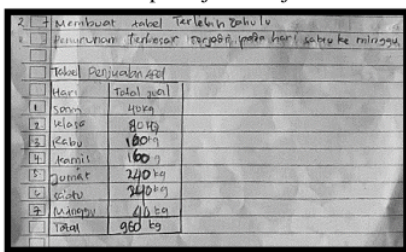 2. + Membuat tabel Terlebih Dahulu
Penurunan terbesar terjadi pada hari sabtu ke minggu
Tabel Penjualan
Hari Total jual
1 Senin 40kg
2 selasa 80 kg
3 Rabu 160 kg
4 kamis 160
5 Jumat 240 kg
6 sabtu 240 kg
7 Minggu 40 kg
Total 960 kg